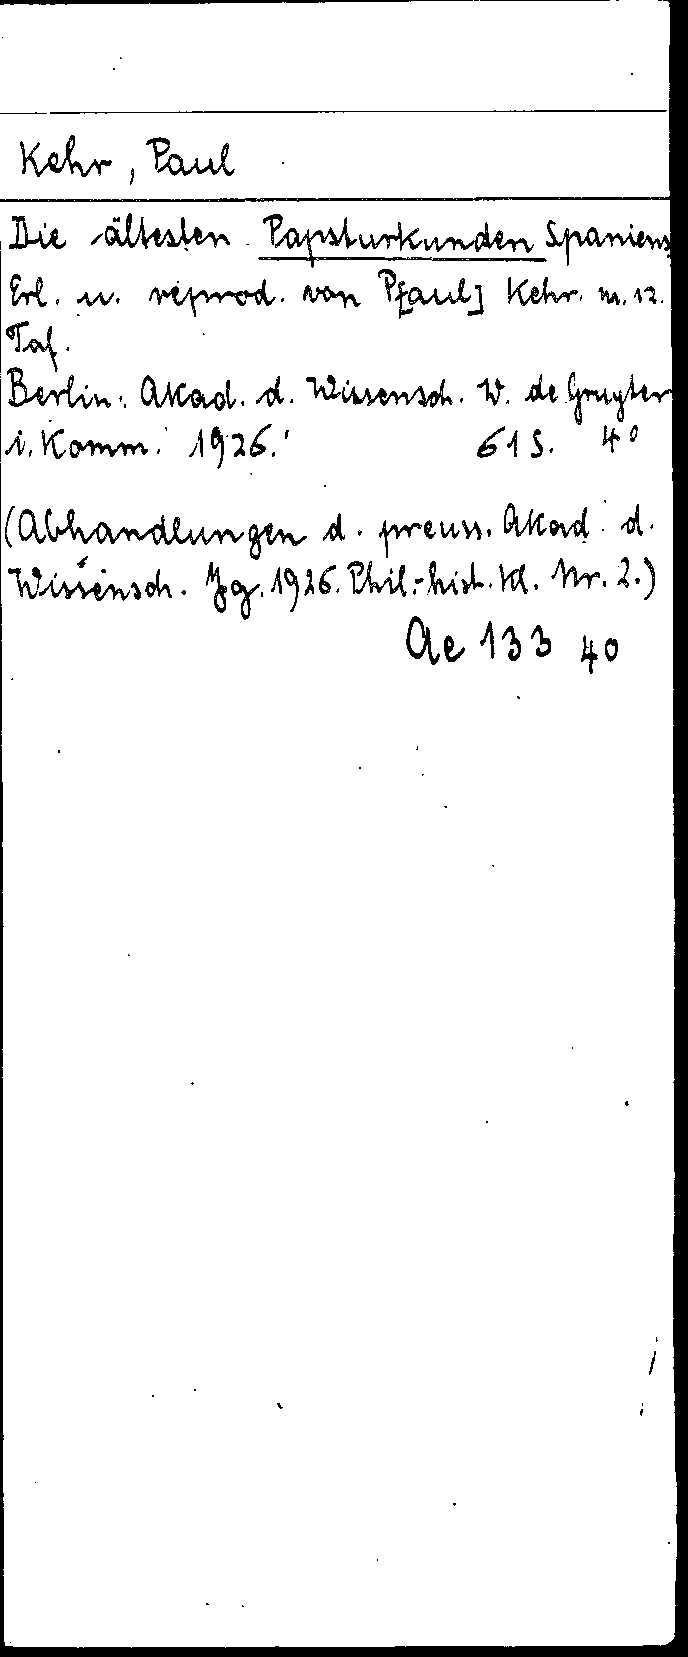 Kehr, Paul
Die ältesten Papsturkunden Spaniens
Erl. u. reprod. von P[aul] Kehr. m. 12.
Taf.
Berlin: Akad. d. Wissensch. W. de Gruyter
i. Komm. 1926. 61 S. 4°
(Abhandlungen d. preuss. Akad. d.
Wissensch. Jg. 1926. Phil.-hist. Kl. Nr. 2.)
Ae 133 40